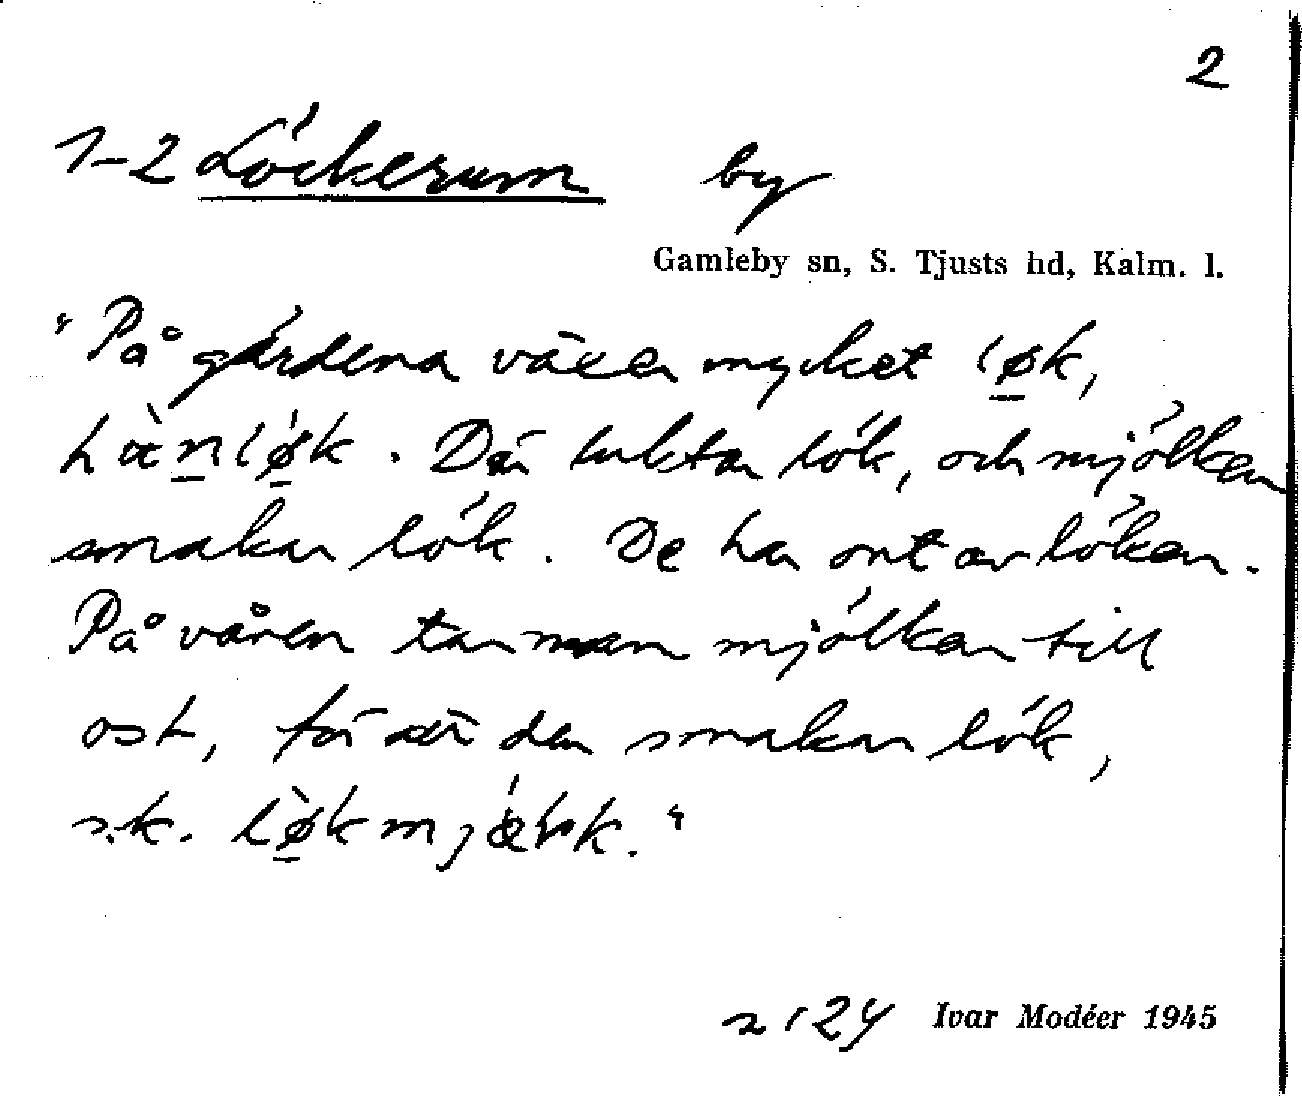 2
1-2 Löckerum by
Gamleby sn, S. Tjusts hd, Kalm. l.
"På gårdena växer mycket løk,
hænløk. Där luktar lök, och mjölken
smakar lök. De har ont av löken.
På våren tar man mjölken till
ost, för när den smakar lök,
s.k. løkmjælk."
Ivar Modéer 1945